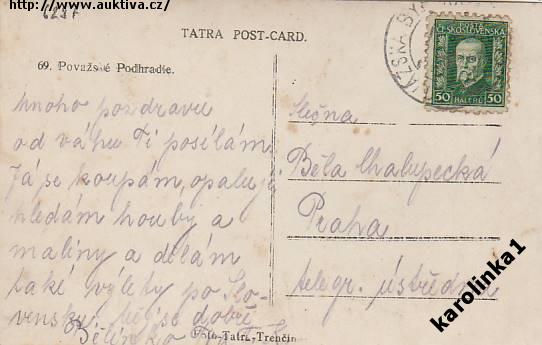 http://www.auktiva.cz/
TATRA POST-CARD.
69. Považské Podhradie.
POŠTA
ČESKOSLOVENSKÁ
50 HALÉŘŮ 50
mnoho pozdravu
od váhu Ti posílám
Já se koupám, opaluji,
hledám houby a
maliny a dělám
také výlety po Slo-
vensku,
Slečna
Běla Chalupecká
Praha
telegr. ústředna
Foto-Tatra-Trenčín
karolinka1